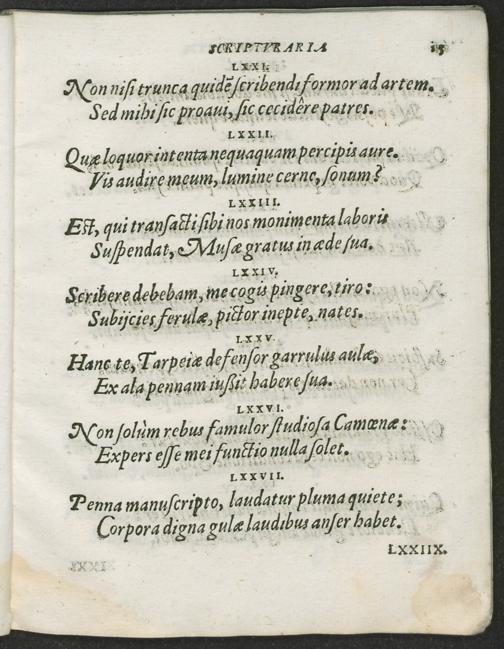 SCRIPTVRARIA 15
LXXI.
Non nisi trunca quidẽ scribendi formor ad artem.
Sed mihi sic proaui, sic cecidêre patres.
LXXII.
Quæ loquor intenta nequaquam percipis aure.
Vis audire meum, lumine cerne, sonum?
LXXIII.
Est, qui transacti sibi nos monimenta laboris
Suspendat, Musæ gratus in æde sua.
LXXIV.
Scribere debebam, me cogis pingere, tiro:
Subijcies ferulæ, pictor inepte, nates.
LXXV.
Hanc te, Tarpeiæ defensor garrulus aulæ,
Ex ala pennam iußit habere sua.
LXXVI.
Non solùm rebus famulor studiosa Camœnæ:
Expers esse mei functio nulla solet.
LXXVII.
Penna manuscripto, laudatur pluma quiete;
Corpora digna gulæ laudibus anser habet.
LXXIIX.